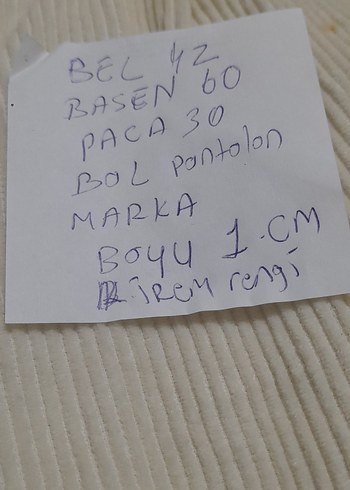 BEL 42
BASEN 60
PAÇA 30
BOL pantolon
MARKA
BOYU 1.CM
KIREM rengi